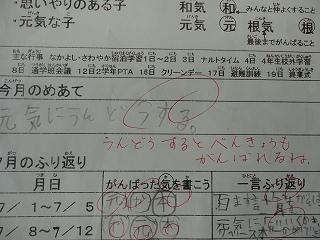 ・思いやりのある子 和気 和 みんなと仲よくすること
・元気な子 元気 元 根気 根
最後までがんばること
主な行事 なかよし・さわやか宿泊学習1日~2日 3日 ナルトタイム 4日 4年生校外学習
8日 通学班会議 12日2学年PTA 16日 クリーンデー 17日 避難訓練 19日 終業式
今月のめあて
元気にうんどうする。
うんどうするとべんきょうも
がんばれるね。
7月のふり返り
月日 がんばった気を書こう 一言ふり返り
7/1~7/5 元
7/8~7/12 元